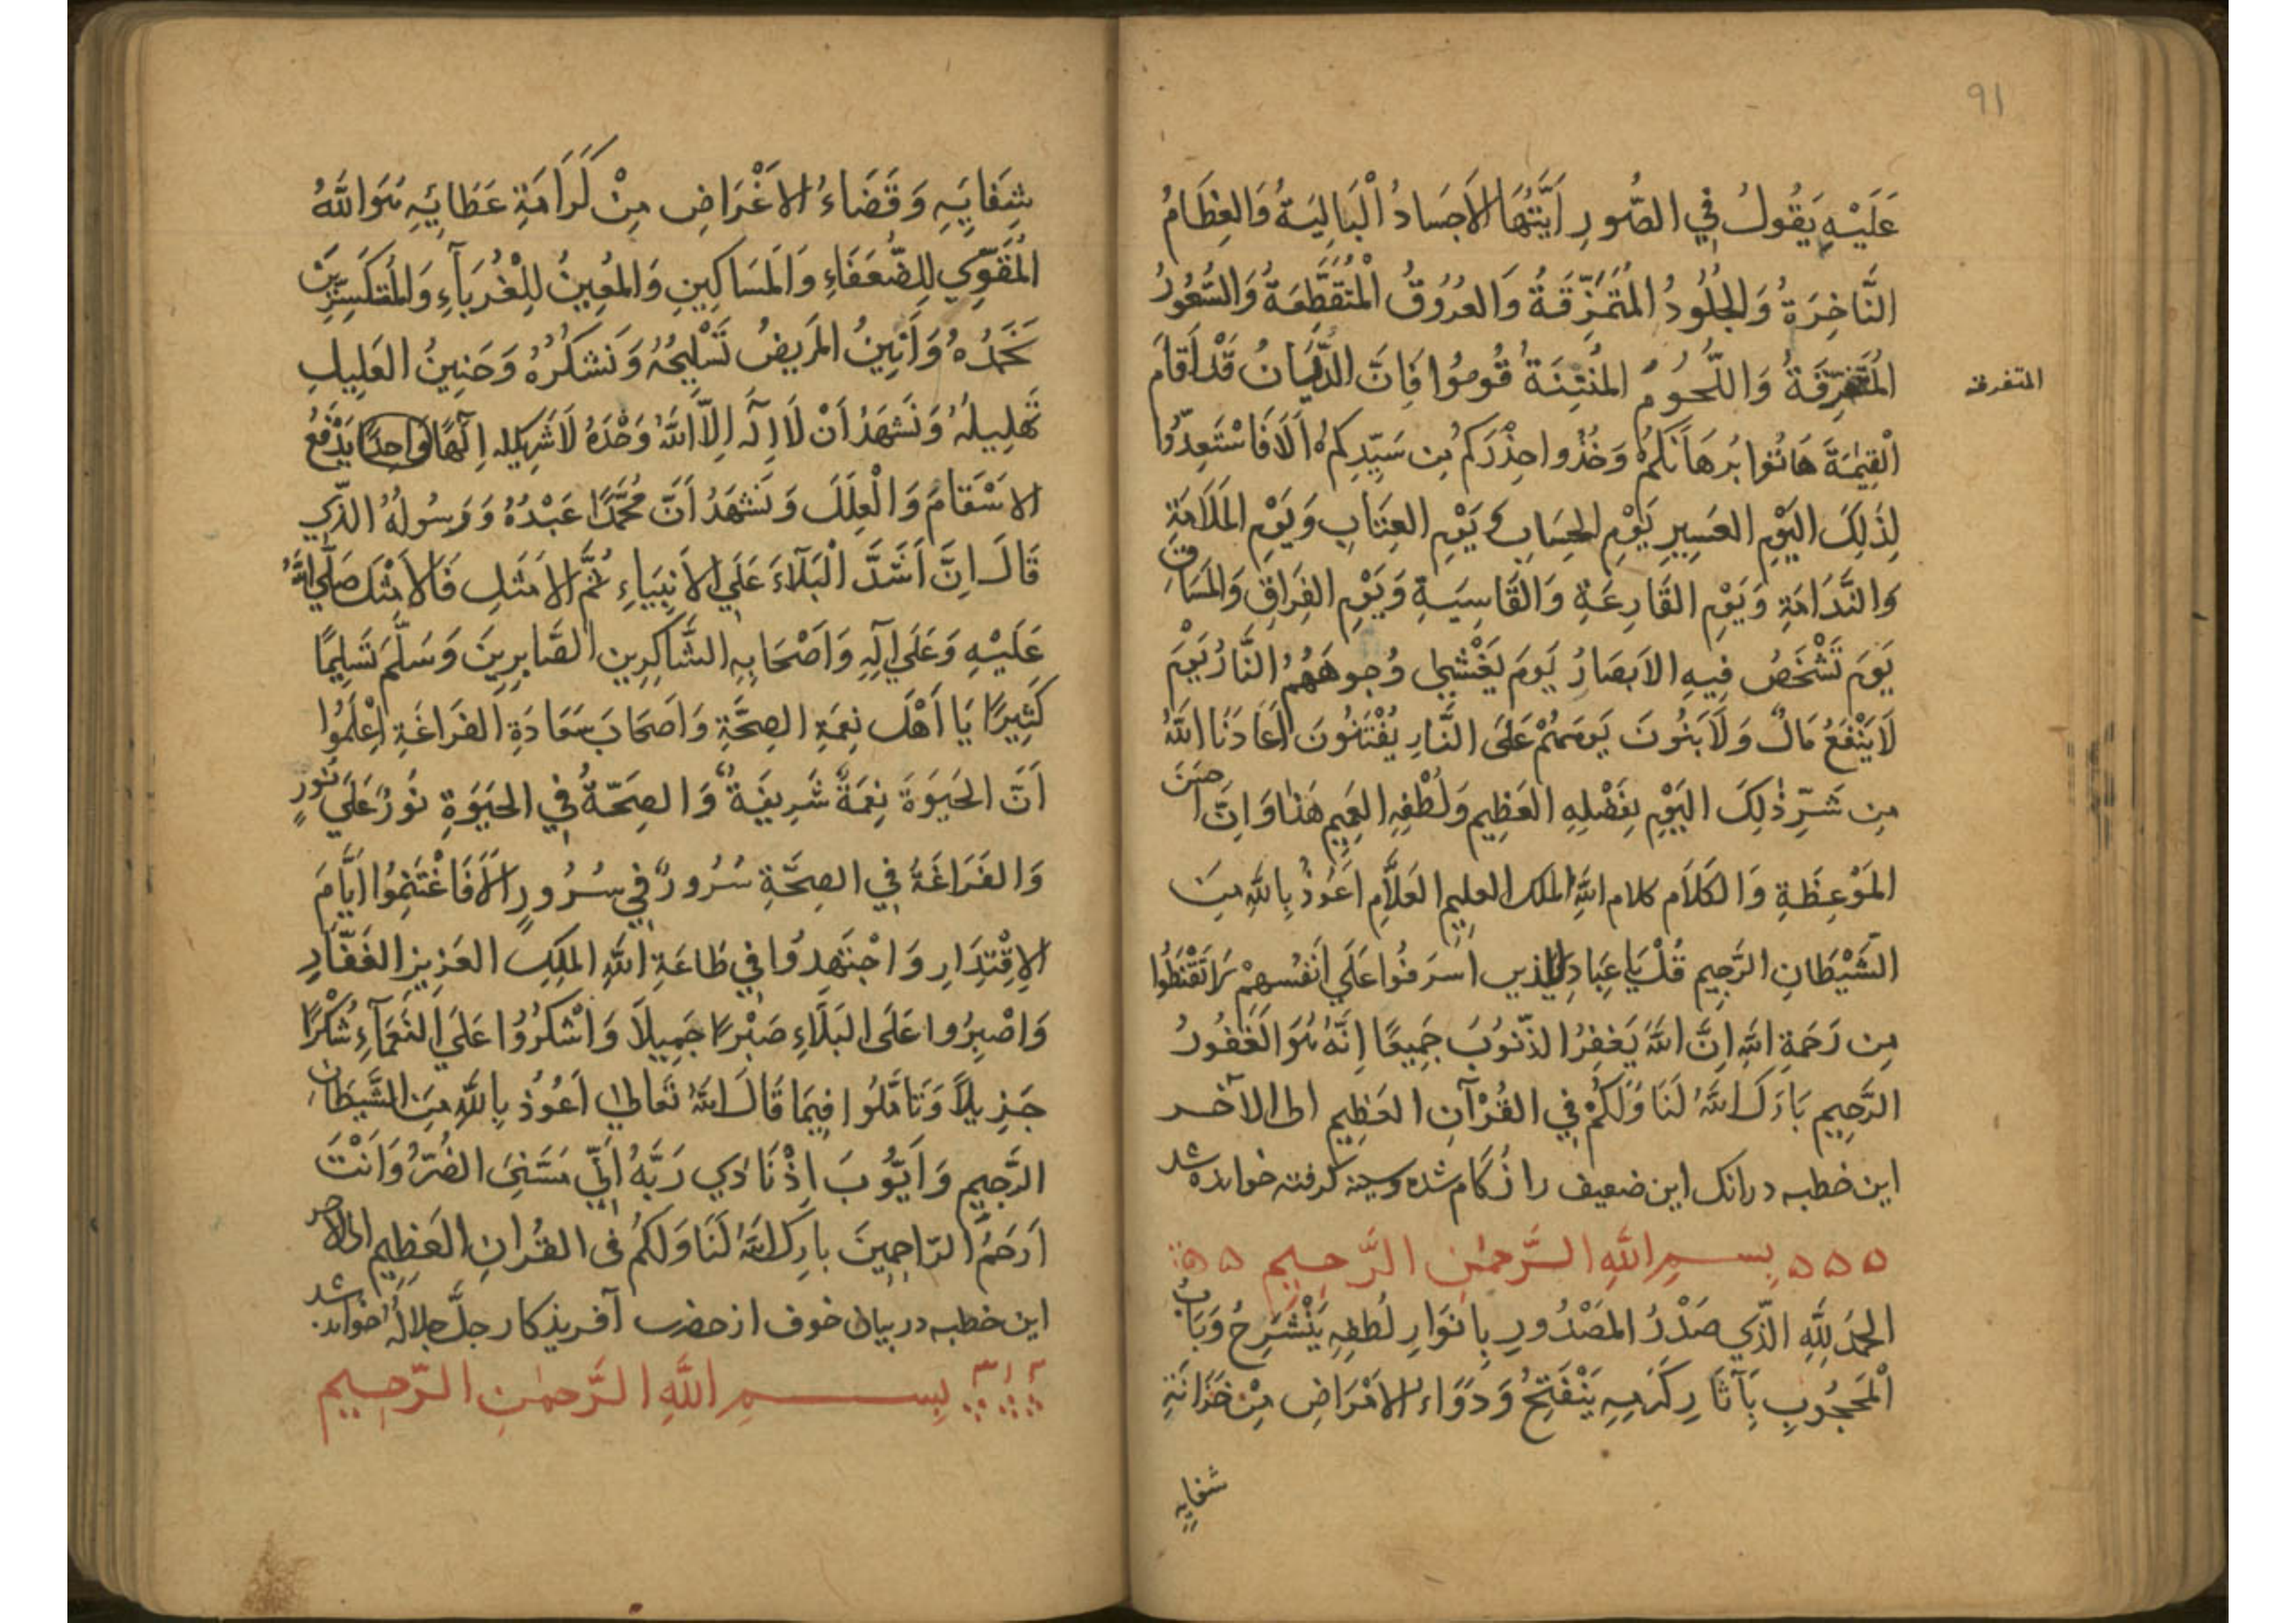 91
عَلَيْهِ يَقُولُ فِي الصُّورِ اَيَّتُهَا الاَجسَادُ الْبَالِيَةُ وَالعِظَامُ
النَّاخِرَةُ وَالجُلُودُ المُتَمَزِّقَةُ وَالعُرُوقُ الْمُتَقَطِّعَةُ وَالشُّعُورُ
المُتَفَرِّقَةُ وَاللُّحُومُ المُنْتِنَةُ قُومُوا فَاِنَّ الدَّيَّانُ قَدْ اَقَامَ
المتفرقه
الْقِيٰمَةَ هَاتُوا بُرهَانَكُمْ وَخُذُوا حِذْرَكُم مِن سَيِّدِكُمْ اَلَا فَاسْتَعِدُّوا
لِذَلِكَ اليَوْمِ العَسِيرِ يَوْمِ الحِسَابِ وَيَوْمِ العِتَابِ وَيَوْمِ المَلَامَةِ
وَالنَّدَامَةِ وَيَوْمِ القَارِعَةِ وَالقَاسِيَةِ وَيَوْمِ الفِرَاقِ وَالمَسَاقِ
يَوَم تَشْخَصُ فِيهِ الاَبصَارُ يَومَ يَغْشٰى وُجوهَهُمُ النَّارُ يَوْمَ
لَا يَنْفَعُ مَالٌ وَلَا بَنُونَ يَومَ هُمْ عَلىَ النَّارِ يُفْتَنُونَ اَعَاذَنَا اللّٰهُ
مِن شَرِّ ذٰلِكَ اليَوْمِ بِفَضْلِهِ العَظِيمِ وَلُطْفِهِ العَمِيمِ هَذا وَاِنَّ اَحسَنَ
المَوْعِظَةِ وَالكَلَامِ كلام اللّٰهِ الملك العلِيمِ العَلَّامِ اَعُوذُ بِاللّٰهِ مِنَ
الشَّيْطَانِ الرَّجِيمِ قُلْ يَا عِبَادِيَ الَّذين اَسرَفُوا عَلَي اَنفُسِهِمْ لَا تَقْنَطُوا
مِن رَحمَةِ اللّٰهِ اِنَّ اللّٰهَ يَغفِرُ الذّنُوبَ جَمِيعًا اِنَّهُ هُوَ الغَفُورُ
الرَّحِيمِ بَارَكَ اللّٰهُ لَنَا وَلَكُمْ فِي القُرْآنِ العَظِيمِ الى الآخـر
این خطبه درانک این ضعیف را زُکَام شده وسینه گرفته خوانده شد
بِسـمِ اللّٰهِ الرَّحمٰنِ الرَّحِيمِ
الحَمدُ لِلّٰهِ الَّذِي صَدْرُ المَصْدُورِ بِاَنوَارِ لُطفِهِ يَنْشَرِحُ وَبَابُ
الْمَحجُوبِ بِآثَارِ كَرَمِهِ يَنْفَتِحُ وَدَوَاءُ الاَمْرَاضِ مِنْ خَزَانَةِ
شفایه
شِفَايِهِ وَقَضَاءُ الاَغْرَاضِ مِنْ كَرَامَةِ عَطَائِهِ هُوَ اللّٰهُ
المُقَوِّي لِلضُّعَفَاءِ وَالمَسَاكِينِ وَالمُعِينُ لِلْغُرَبَآءِ وَالمُتكَسِّرِينَ
نَحمَدُهُ وَاَنِينُ المَرِيضُ تَسْبِيحُهُ وَنَشكُرُهُ وَحَنِينُ العَلِيلِ
تَهلِيلُهُ وَنَشهَدُ اَنْ لَا اِلٰهَ اِلَّا اللّٰهُ وَحْدَهُ لَا شَرِيكَ لَه اِلٰهًا وَاحِدًا يَدْفَعُ
الاَسْقَامَ وَالْعِلَلَ وَنَشهَدُ اَنَّ مُحَمَّدًا عَبْدُهُ وَرَسُولُهُ الَّذِي
قَالَ اِنَّ اَشَدَّ الْبَلَآءَ عَلَي الاَنبِيَاءِ ثُمَّ الاَمثَلِ فَالاَمْثَل صَلَّي اللّٰهُ
عَلَيْهِ وَعَلَي آلِهِ وَاَصْحَابِهِ الشَّاكِرِين الصَّابِرِينَ وَسَلَّمَ تَسلِيمًا
كَثِيرًا يَا اَهْلَ نِعمَةِ الصِحَّةِ وَاَصحَابَ سَعَادَةِ الفَرَاغَةِ اِعْلَمُوا
اَنَّ الحَيَوةَ نِعمَةٌ شَرِيفَةٌ وَالصِحّةُ فِي الحَيَوةِ نُورٌ عَلَي نُورٍ
وَالفَرَاغَةُ فِي الصِحَّةِ سُرُورٌ فِي سُرُورٍ اَلَا فَاغْتَنِمُوا اَيَّامَ
الاِقْتِدَارِ وَاجْتَهِدُوا فِي طَاعَةِ اللّٰهِ المَلِكِ العَزِيزِ الغَفَّارِ
وَاصْبِرُوا عَلَى البَلَاءِ صَبْرًا جَمِيلًا وَاشْكُرُوا عَلَي النَعمَآءِ شُكْرًا
جَزِيلًا وَتَامَّلُوا فِيمَا قَالَ اللّٰهُ تَعَالٰى اَعُوُذ بِاللّٰهِ مِنَ الشَّيطَانِ
الرَّجِيمِ وَاَيُّوبَ اِذْنَادَي رَبَّهُ اَنِّي مَسَّنِيَ الضُرُّ وَاَنْتَ
اَرحَمُ الرّاحِمِينَ بارك اللّٰهُ لَنَا وَلَكُمْ فى القُرانِ العَظِيمِ الى الاخر
این خطبه در بیان خوف از حضرت آفریذکار جلَّ جلالُهُ خوانده شد
بِســـمِ اللّٰهِ الرَّحمٰنِ الرَّحِيمِ